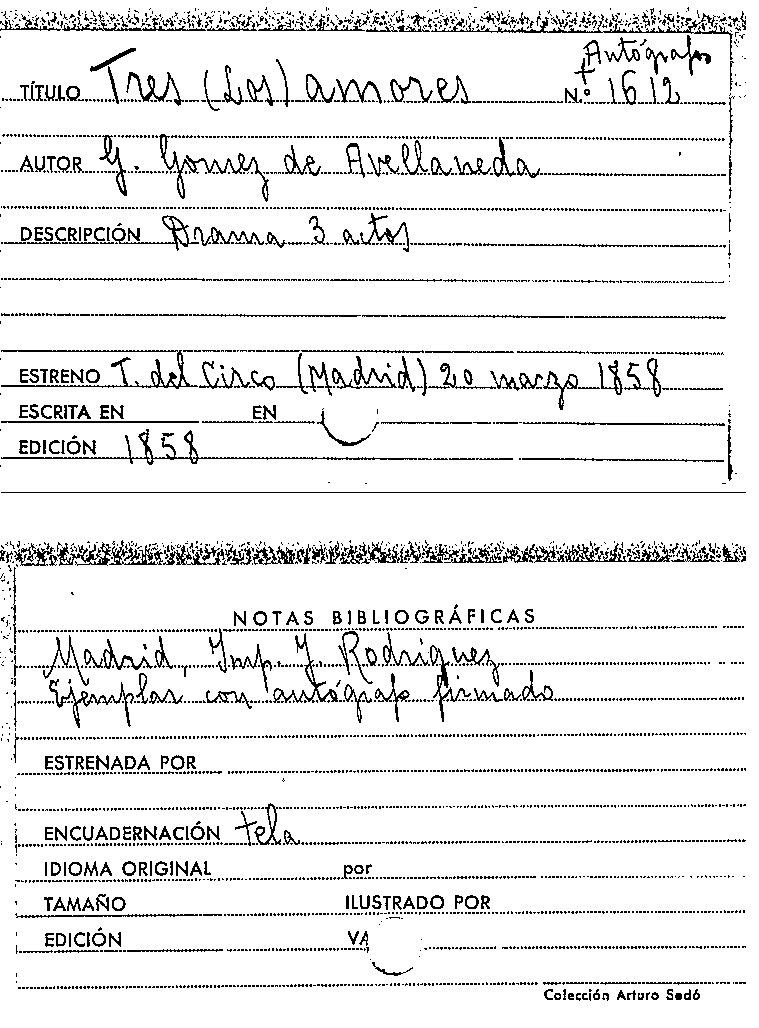 Autógrafo
TÍTULO Tres (Los) amores N.º + 1612
AUTOR G. Gomez de Avellaneda
DESCRIPCIÓN Drama 3 actos
ESTRENO T. del Circo (Madrid) 20 marzo 1858
ESCRITA EN EN
EDICIÓN 1858
NOTAS BIBLIOGRÁFICAS
Madrid, Imp. J. Rodriguez
Ejemplar con autógrafo firmado
ESTRENADA POR
ENCUADERNACIÓN tela
IDIOMA ORIGINAL por
TAMAÑO ILUSTRADO POR
EDICIÓN VA
Colección Arturo Sedó